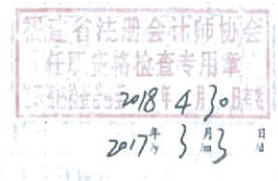 福建省注册会计师协会
任职资格检查专用章
2018年4月30日有效
2017年3月3日